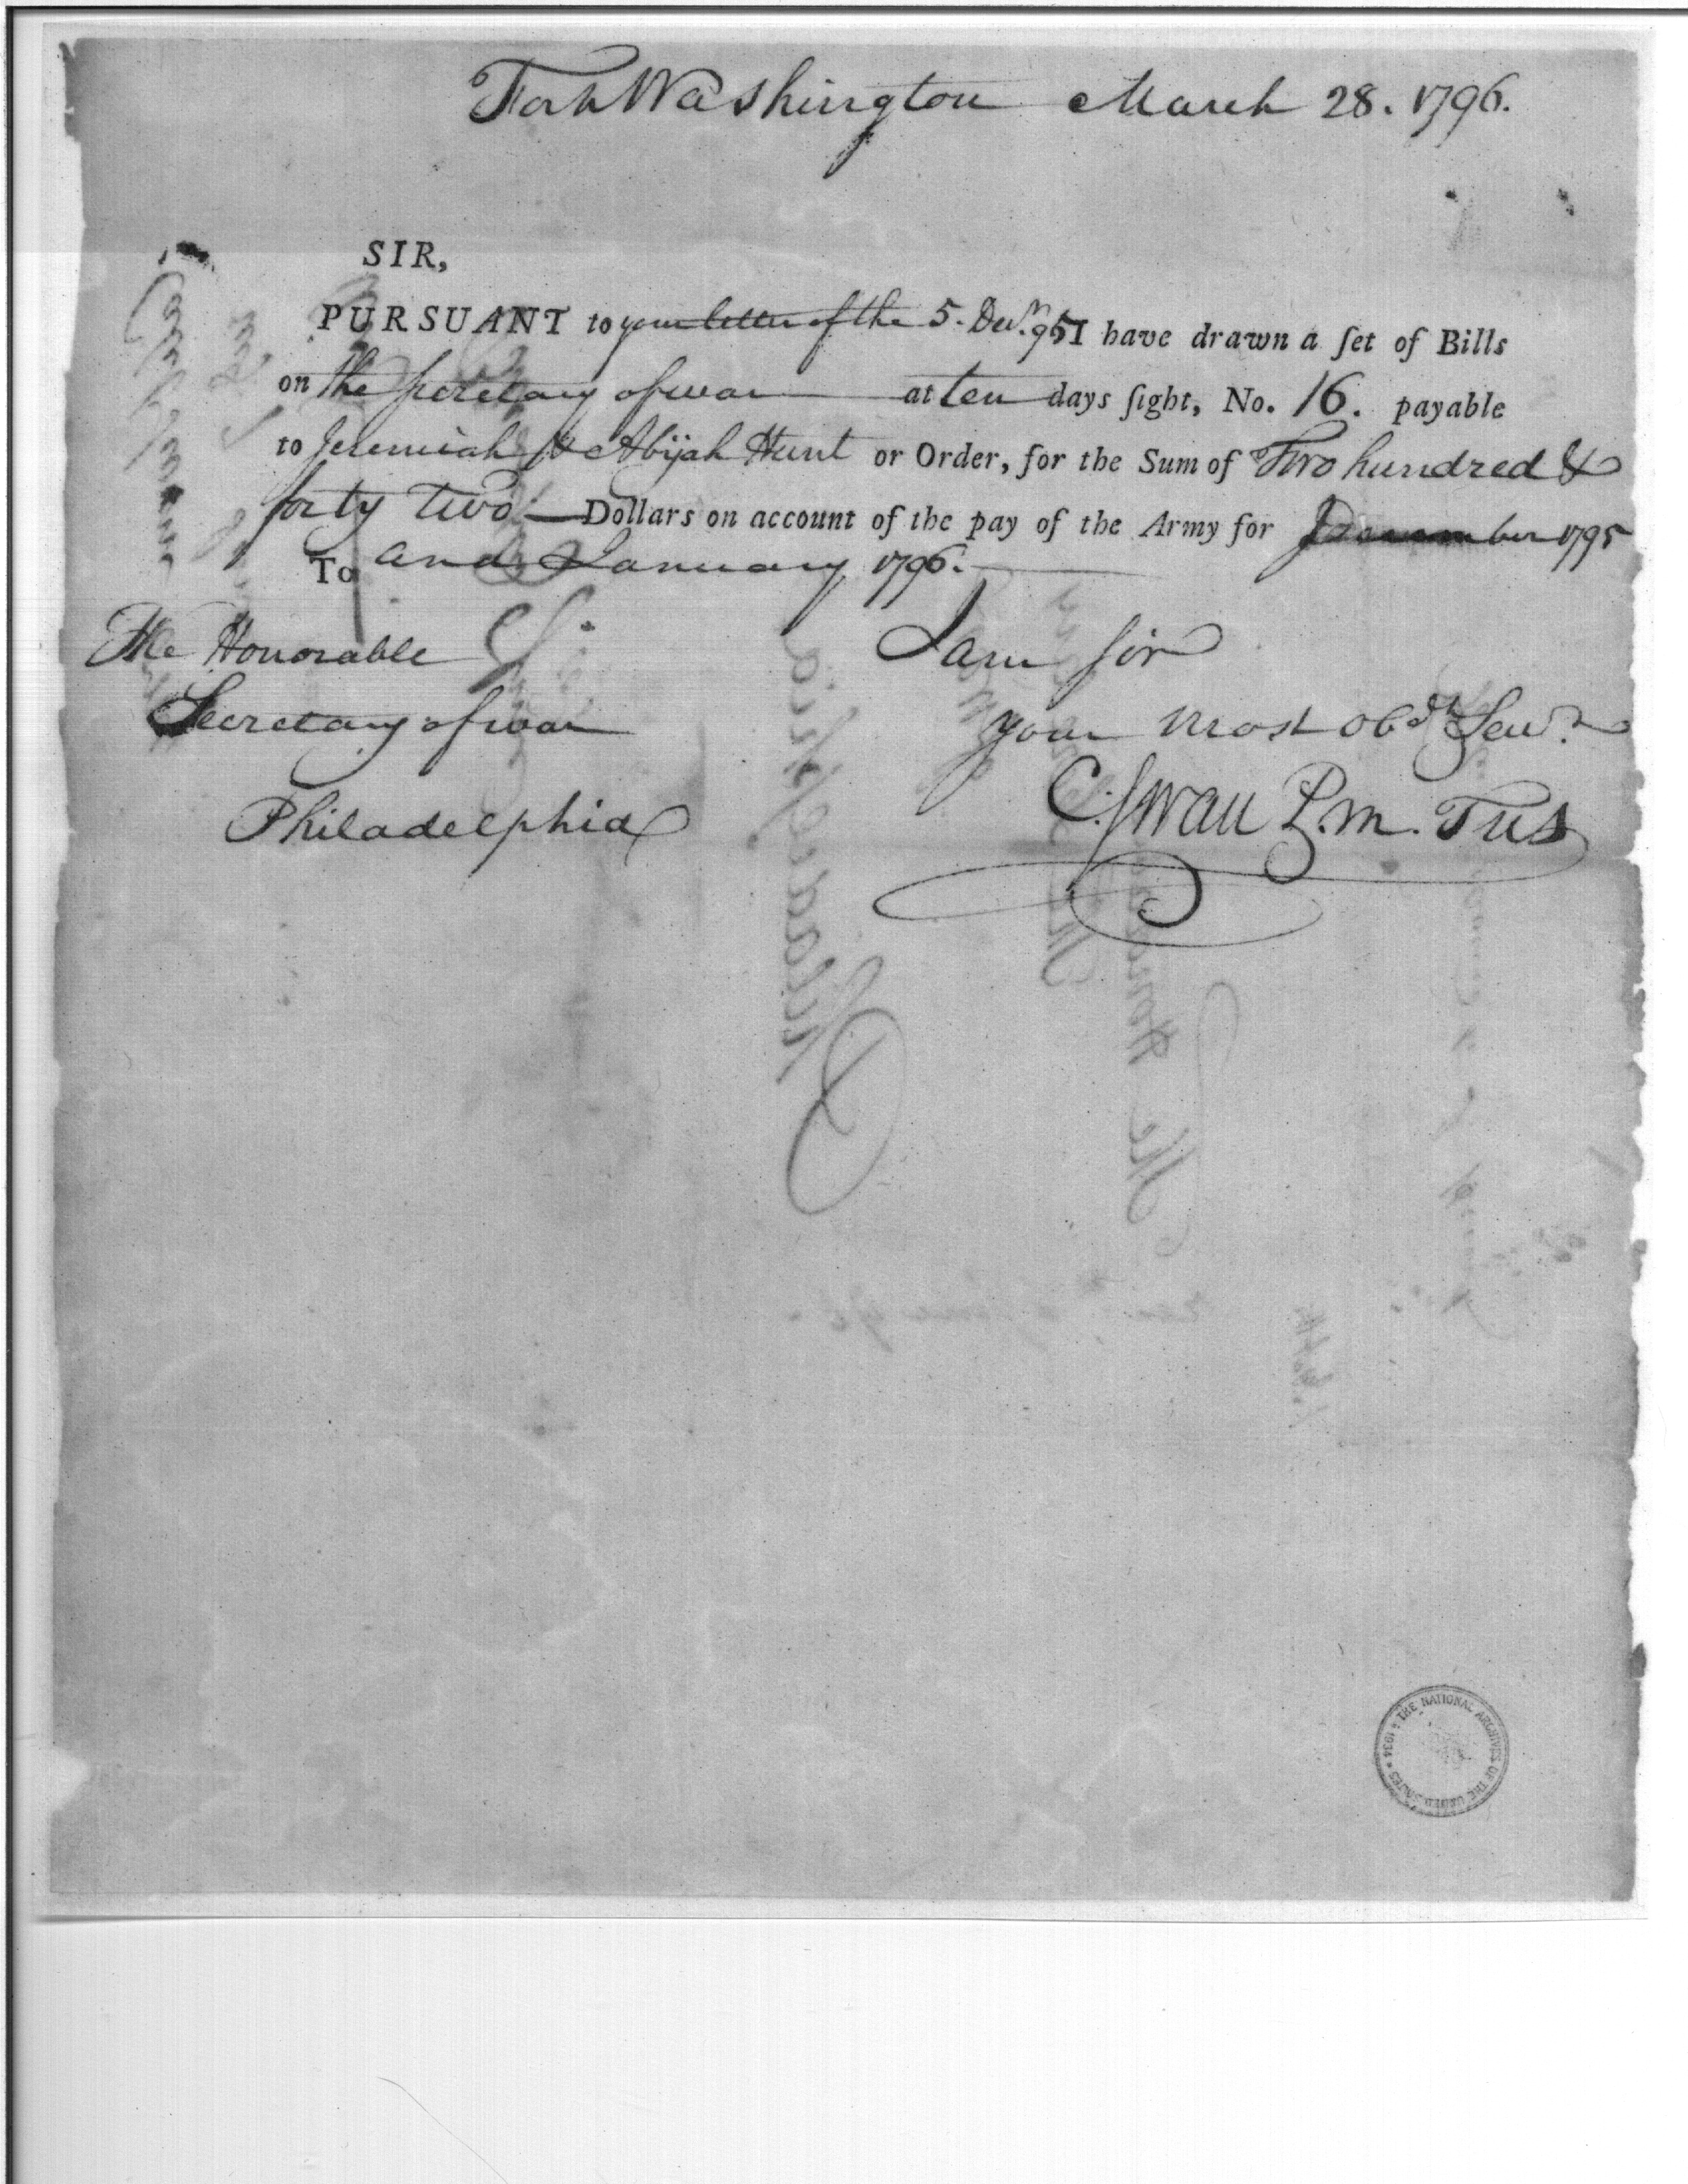 Fort Washington March 28. 1796.
SIR,
PURSUANT to your letter of the 5. Decr. 95 I have drawn a ſet of Bills
on the Secretary of war at ten days ſight, No. 16. payable
to Jeremiah & Abijah Hunt or Order, for the Sum of Two hundred &
forty two Dollars on account of the pay of the Army for December 1795
To and January 1796.
The Honorable
Secretary of war
Philadelphia
I am sir
your most obdt Servt
C. Swan P.m. TUS
THE NATIONAL ARCHIVES OF THE UNITED STATES * 1934 *
Philadelphia
The Honorable